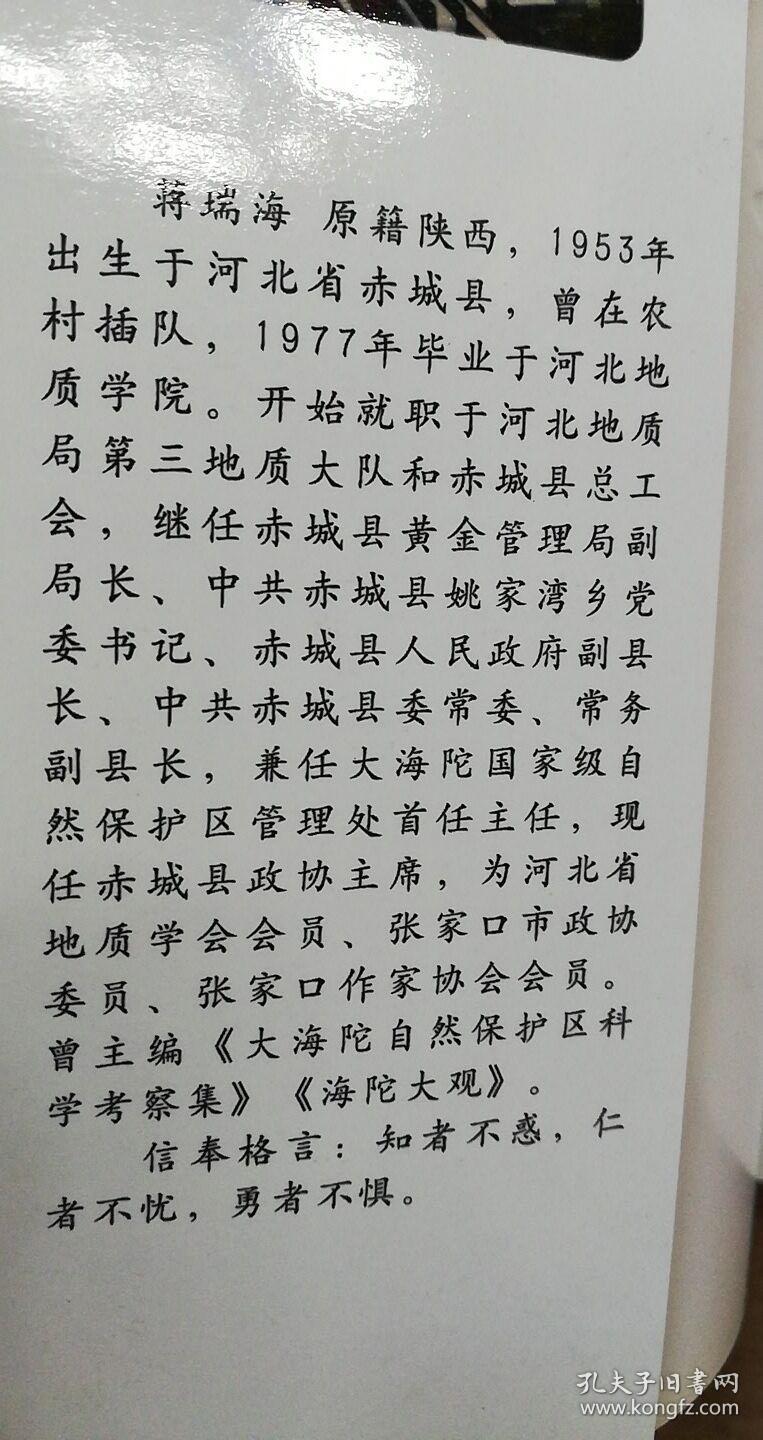 蒋瑞海 原籍陕西，1953年
出生于河北省赤城县，曾在农
村插队，1977年毕业于河北地
质学院。开始就职于河北地质
局第三地质大队和赤城县总工
会，继任赤城县黄金管理局副
局长、中共赤城县姚家湾乡党
委书记、赤城县人民政府副县
长、中共赤城县委常委、常务
副县长，兼任大海陀国家级自
然保护区管理处首任主任，现
任赤城县政协主席，为河北省
地质学会会员、张家口市政协
委员、张家口作家协会会员。
曾主编《大海陀自然保护区科
学考察集》《海陀大观》。
信奉格言：知者不惑，仁
者不忧，勇者不惧。
孔夫子旧书网
www.kongfz.com